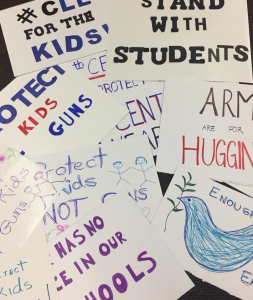 #CLE
FOR THE
KIDS!
STAND
WITH
STUDENTS
PROTECT
KIDS
GUNS
PROTECT
CENT
ARM
ARE FOR
HUGGIN
Protect
Kids
NOT GUNS
Kids
Guns
HAS NO
IN OUR
SCHOOLS
PROTECT
Kids
ENOUGH